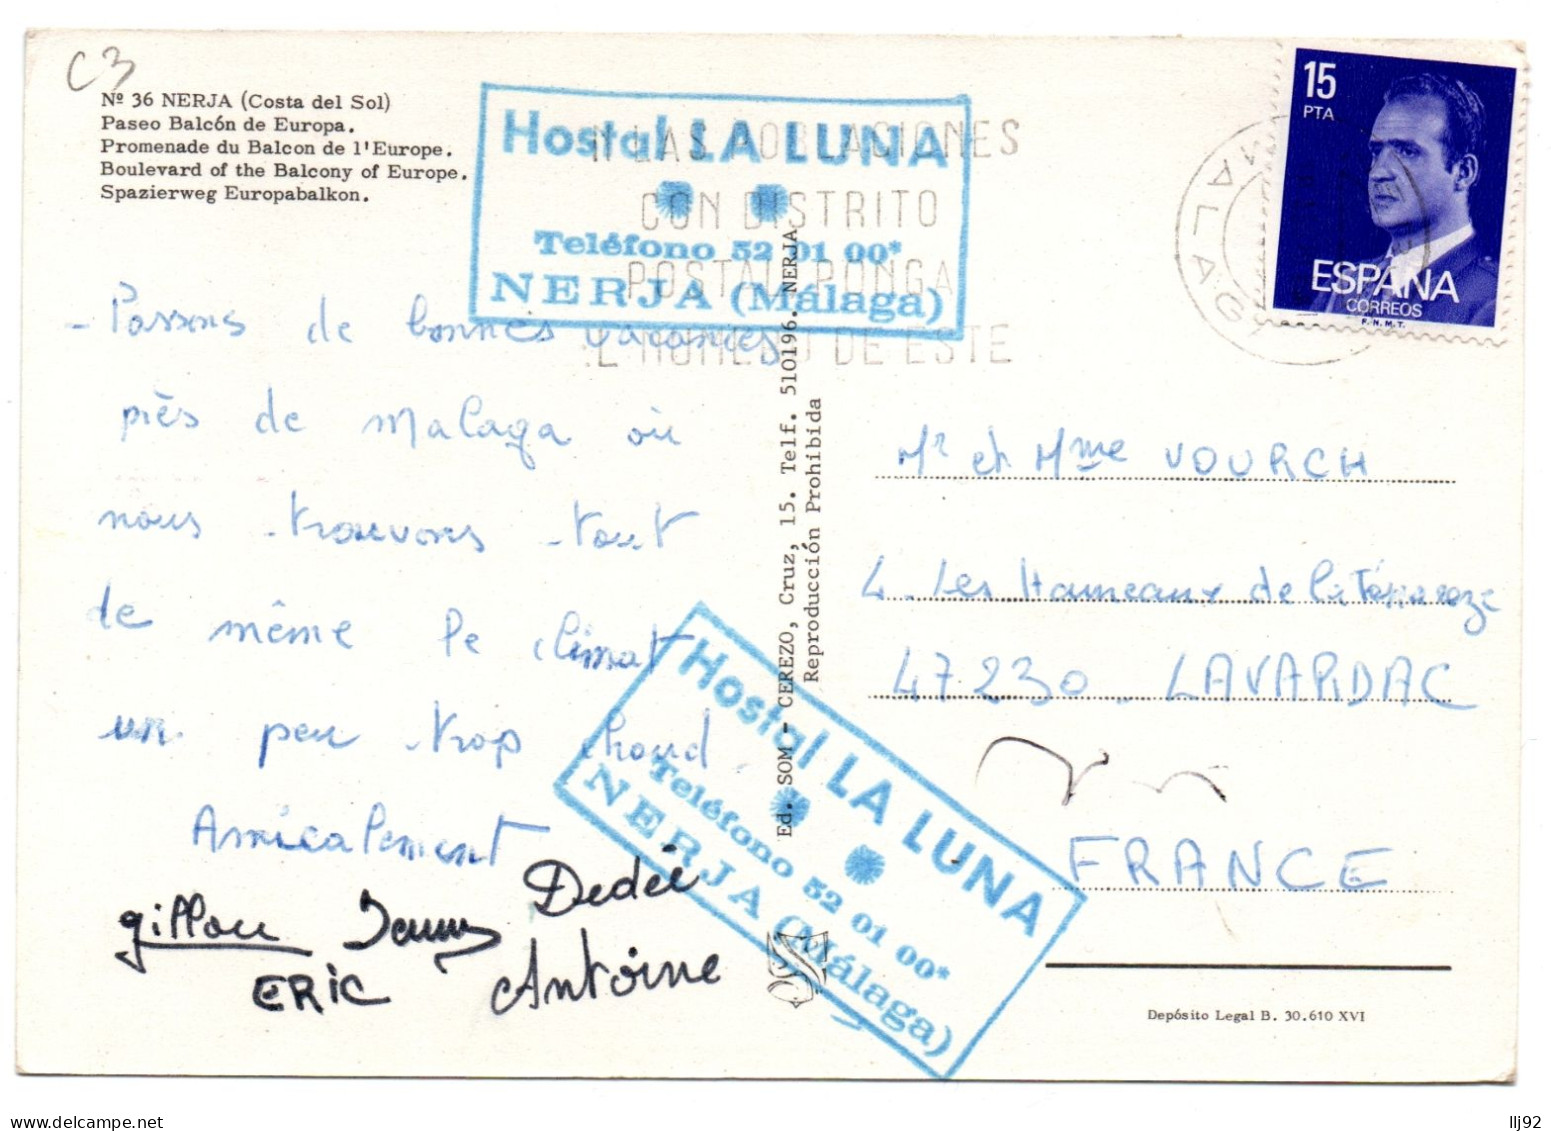 C3
Nº 36 NERJA (Costa del Sol)
Paseo Balcón de Europa.
Promenade du Balcon de l'Europe.
Boulevard of the Balcony of Europe.
Spazierweg Europabalkon.
Hostal LA LUNA
Teléfono 52 01 00*
NERJA (Málaga)
N LAS POBLACIONES
CON DISTRITO
POSTAL PONGA
EL NUMERO DE ESTE
MALAGA
15
PTA
ESPAÑA
CORREOS
F.N.M.T.
- Passons de bonnes vacances
près de Malaga où
nous trouvons tout
de même le climat
un peu trop chaud.
Amicalement
gillou Dedée
ERIC Antoine
Ed. SOM - CEREZO, Cruz, 15. Telf. 510196. NERJA
Reproducción Prohibida
Mr et Mme VOURCH
4. Les Hameaux de la
47230 LAVARDAC
FRANCE
Hostal LA LUNA
Teléfono 52 01 00*
NERJA (Málaga)
Depósito Legal B. 30.610 XVI
www.delcampe.net
llj92